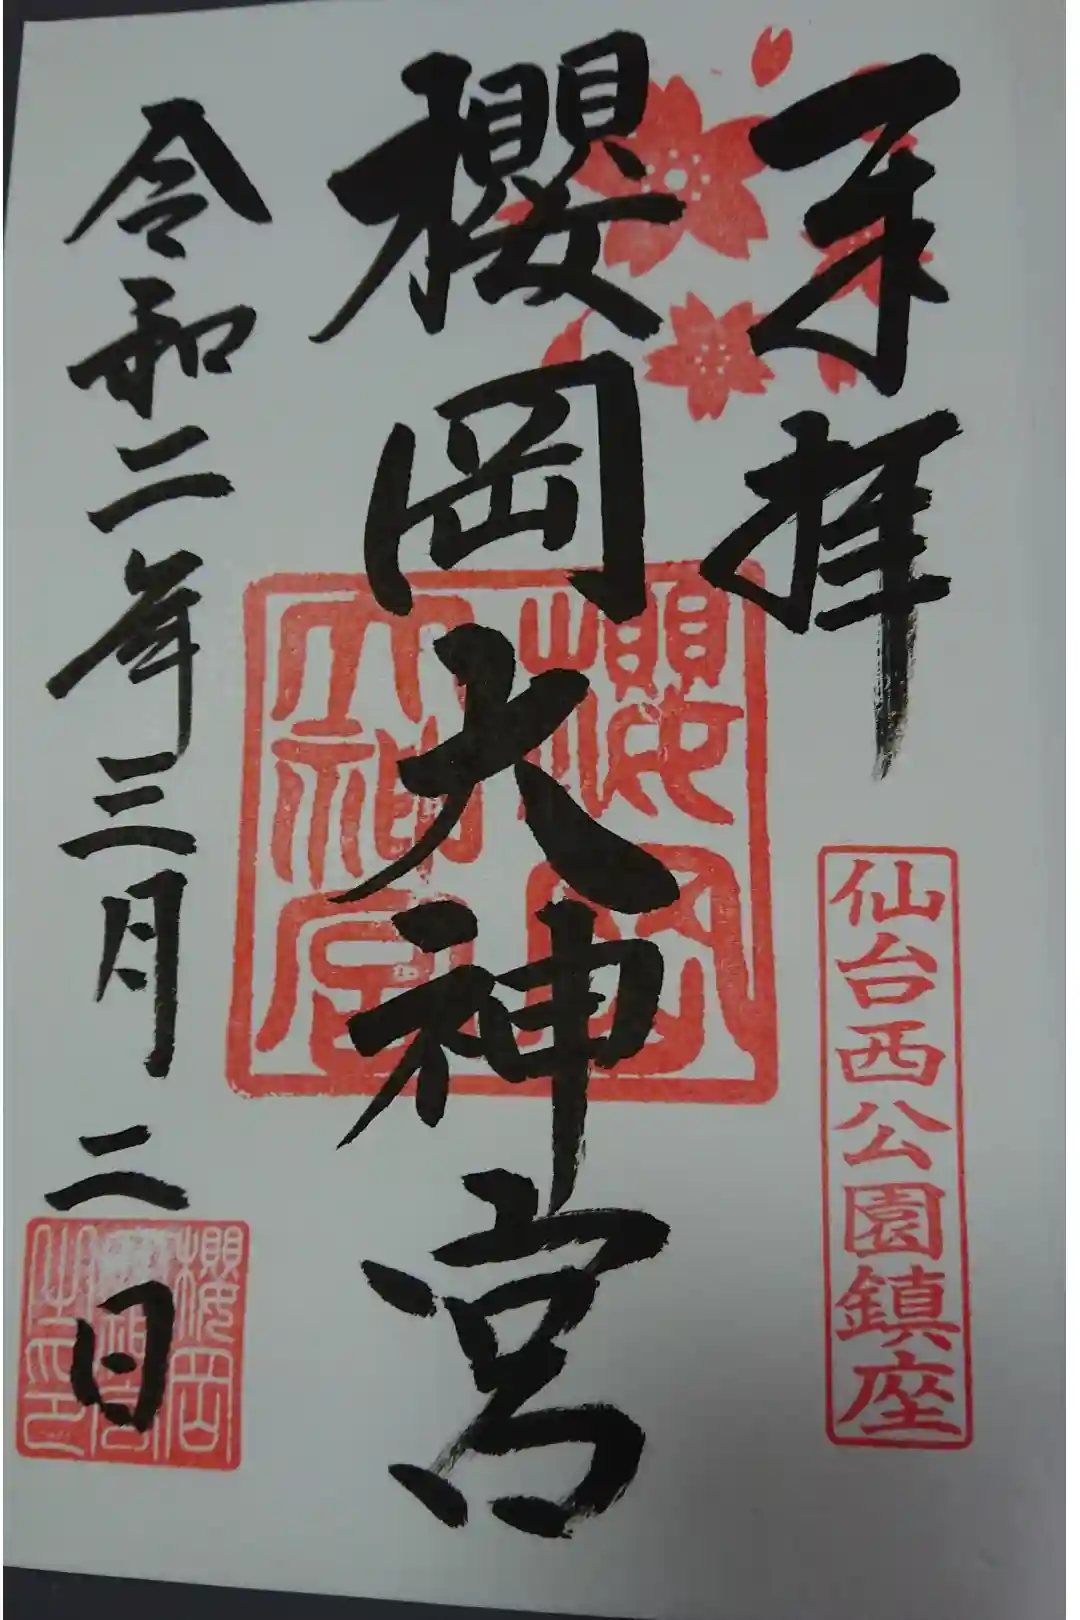 奉拝
仙台西公園鎮座
櫻岡大神宮
櫻岡
大神宮
令和二年三月二日
櫻岡
大神宮
之印